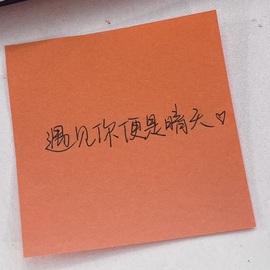 遇见你便是晴天♡